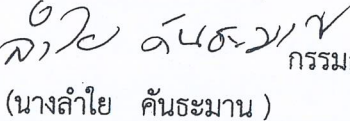 ลำใย คันธะมาน
กรรม
(นางลำใย คันธะมาน)